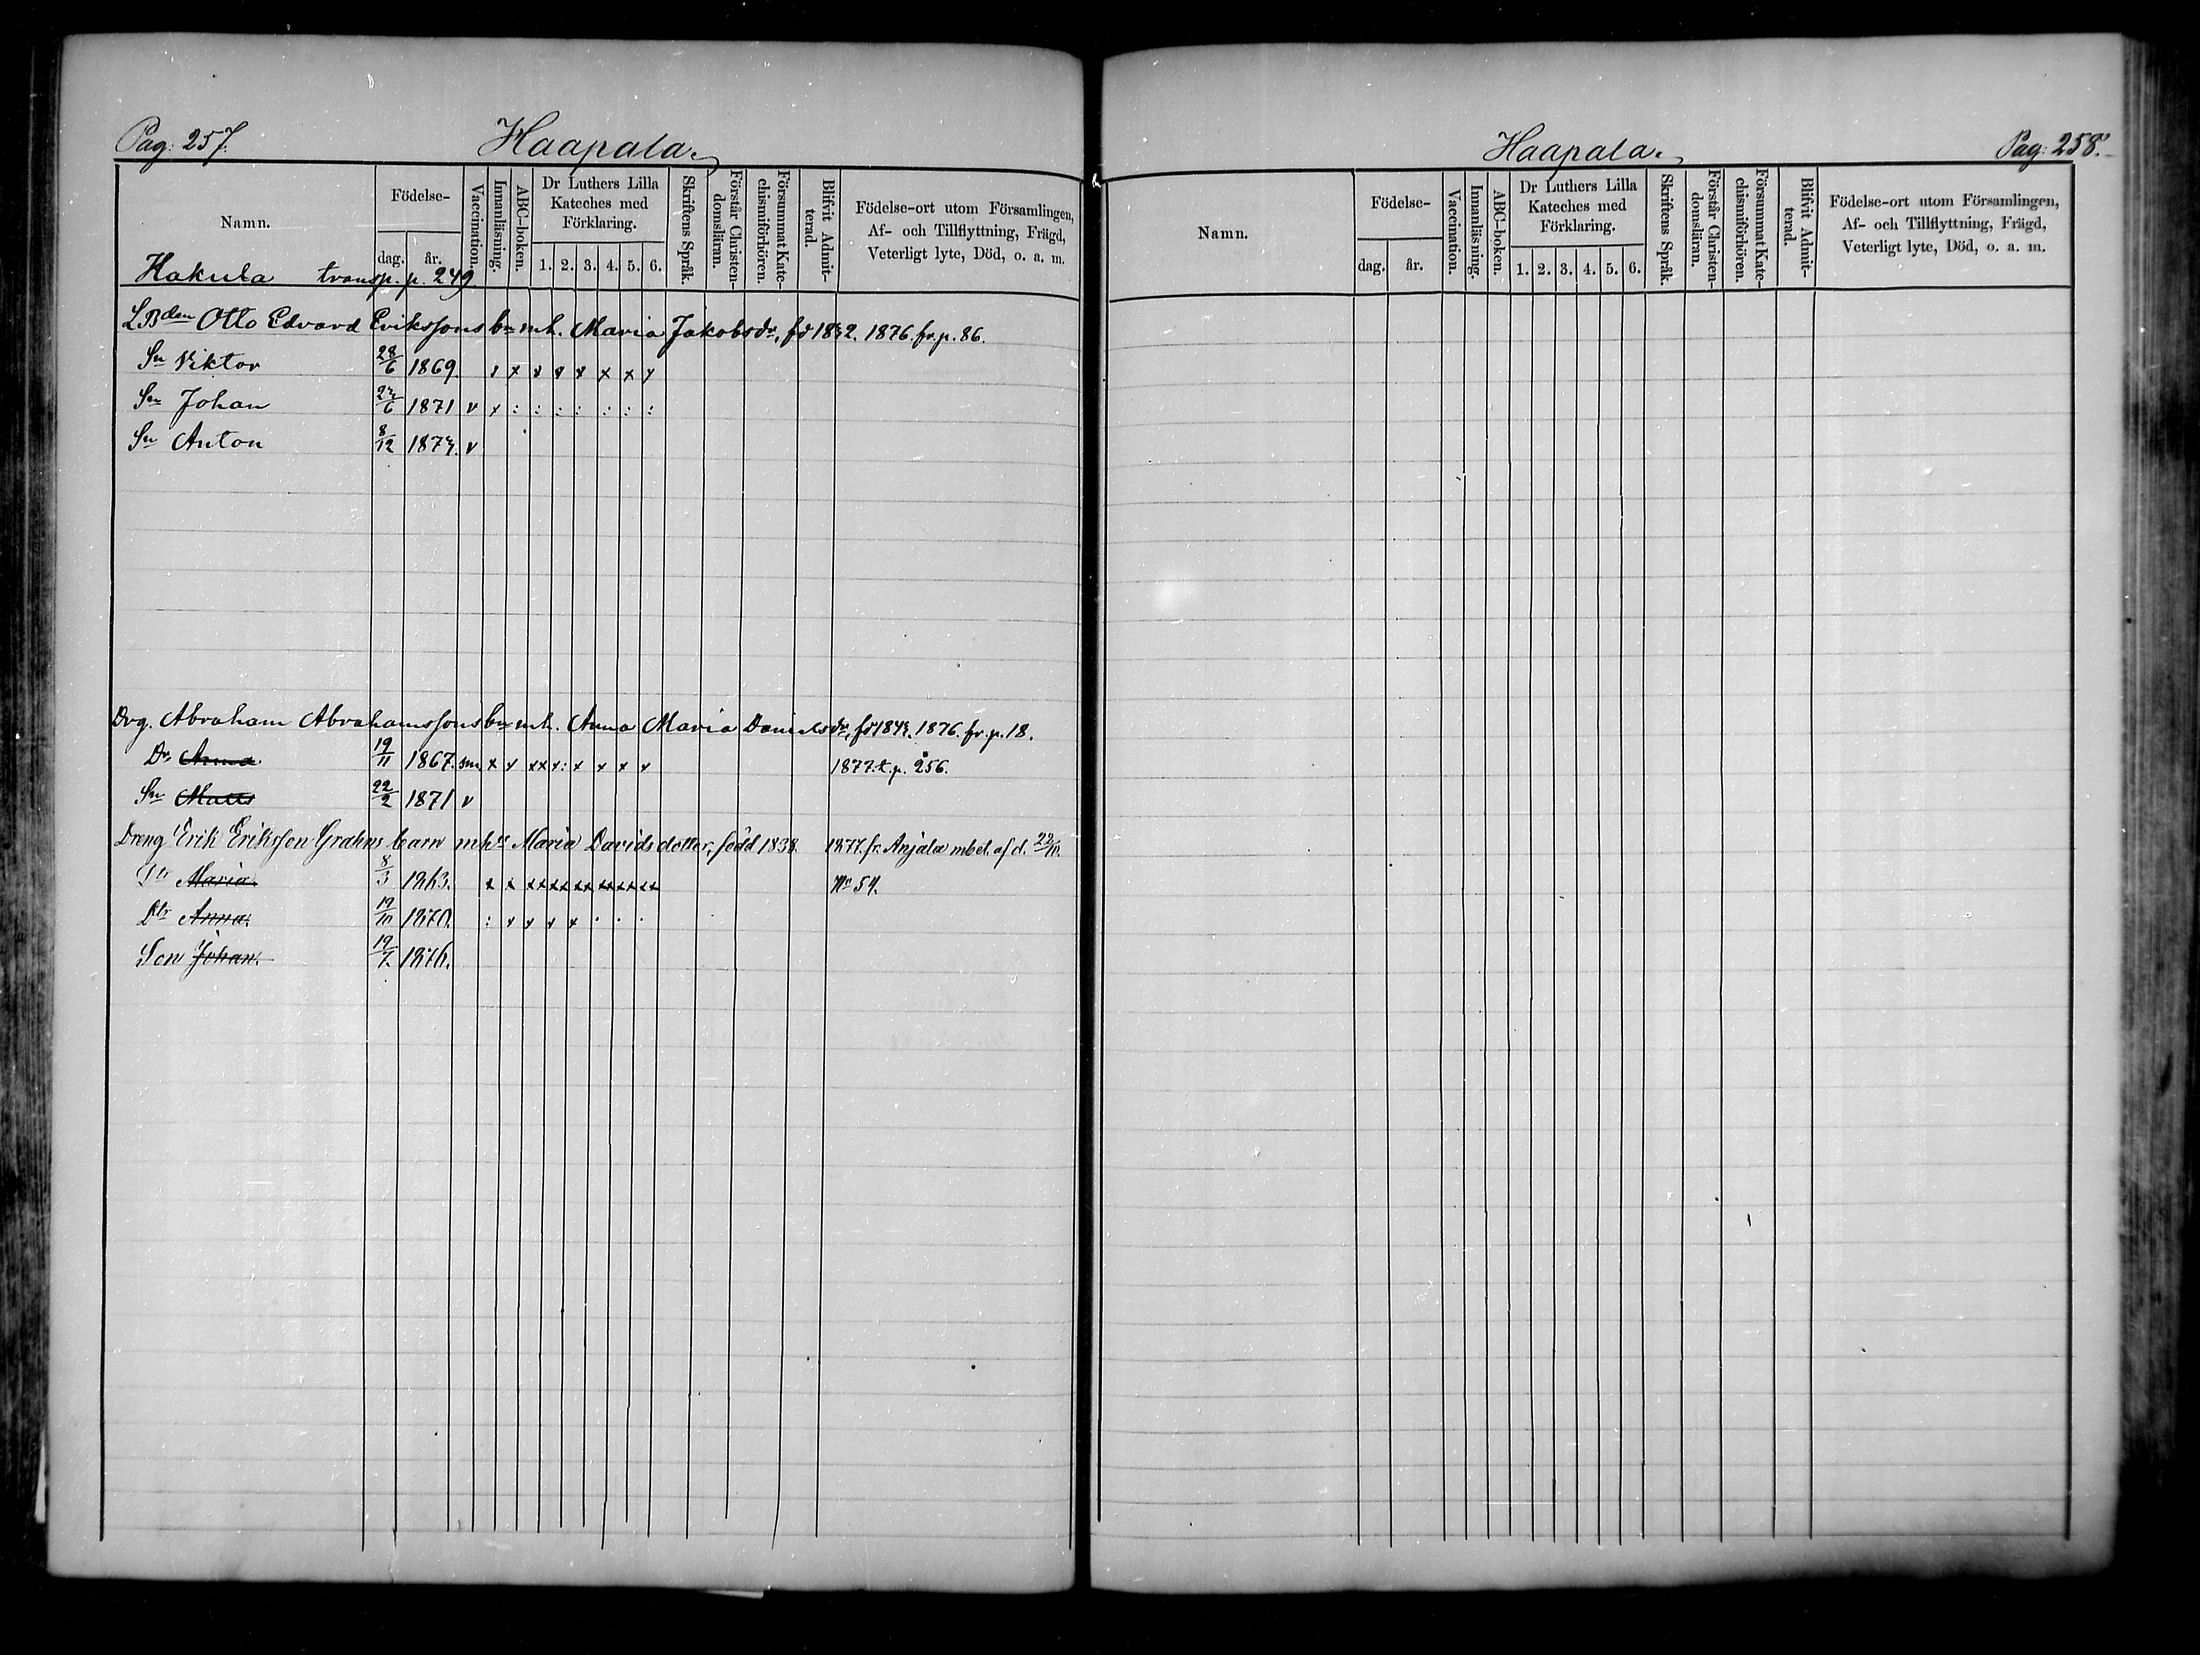 Pag: 257. Haapala.
Namn. Födelse- dag. år. Vaccination. Innanläsning. ABC-boken. Dr Luthers Lilla Kateches med Förklaring. 1. 2. 3. 4. 5. 6. Skriftens Språk. Förstår Christendomsläran. Försummat Katechismiförhören. Blifvit Admitterad. Födelse-ort utom Församlingen, Af- och Tillflyttning, Frägd, Veterligt lyte, Död, o. a. m.
Hakula transp. p. 249.
LBden Otto Edvard Erikssons bn mh. Maria Jakobsdr, fd 1842. 1876. fr. p. 86.
Sn Viktor 28/6 1869. x x x x x x x x
Sn Johan 24/6 1871 v x : : : : : : :
Sn Anton 8/12 1874. v
Drg. Abraham Abrahamssons bn mh. Anna Maria Danielsdr, fd 1844. 1876. fr. p. 18.
Dr Anna 19/11 1867. sm x x xx x: x x x x 1877. t. p. 256.
Sn Matts 22/2 1871 v
Dreng Erik Eriksson Grahns barn m hu Maria Davidsdotter, född 1838. 1877. fr. Anjala m bet. af d. 22/10.
Dtr Maria. 8/3 1863. x x xx xx xx xx xx xx No 54.
Dtr Anna. 19/10 1870. : x x x x . . .
Son Johan. 19/7. 1876.
Haapala. Pag: 258.
Namn. Födelse- dag. år. Vaccination. Innanläsning. ABC-boken. Dr Luthers Lilla Kateches med Förklaring. 1. 2. 3. 4. 5. 6. Skriftens Språk. Förstår Christendomsläran. Försummat Katechismiförhören. Blifvit Admitterad. Födelse-ort utom Församlingen, Af- och Tillflyttning, Frägd, Veterligt lyte, Död, o. a. m.